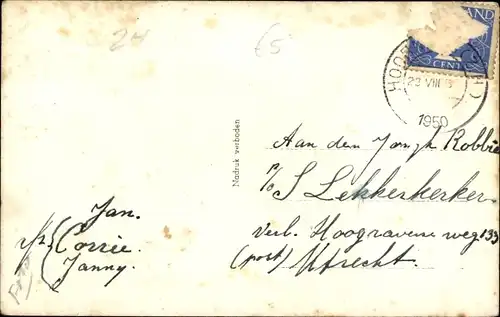 24
€5
LAND
CENT
HOOR
23 VIII
1950
Nadruk verboden
Aan den Jongh Robbie
p/o S Lekkerkerker
verl. Hoogravense weg 133
(post) Utrecht.
Jan.
Corrie.
Janny.